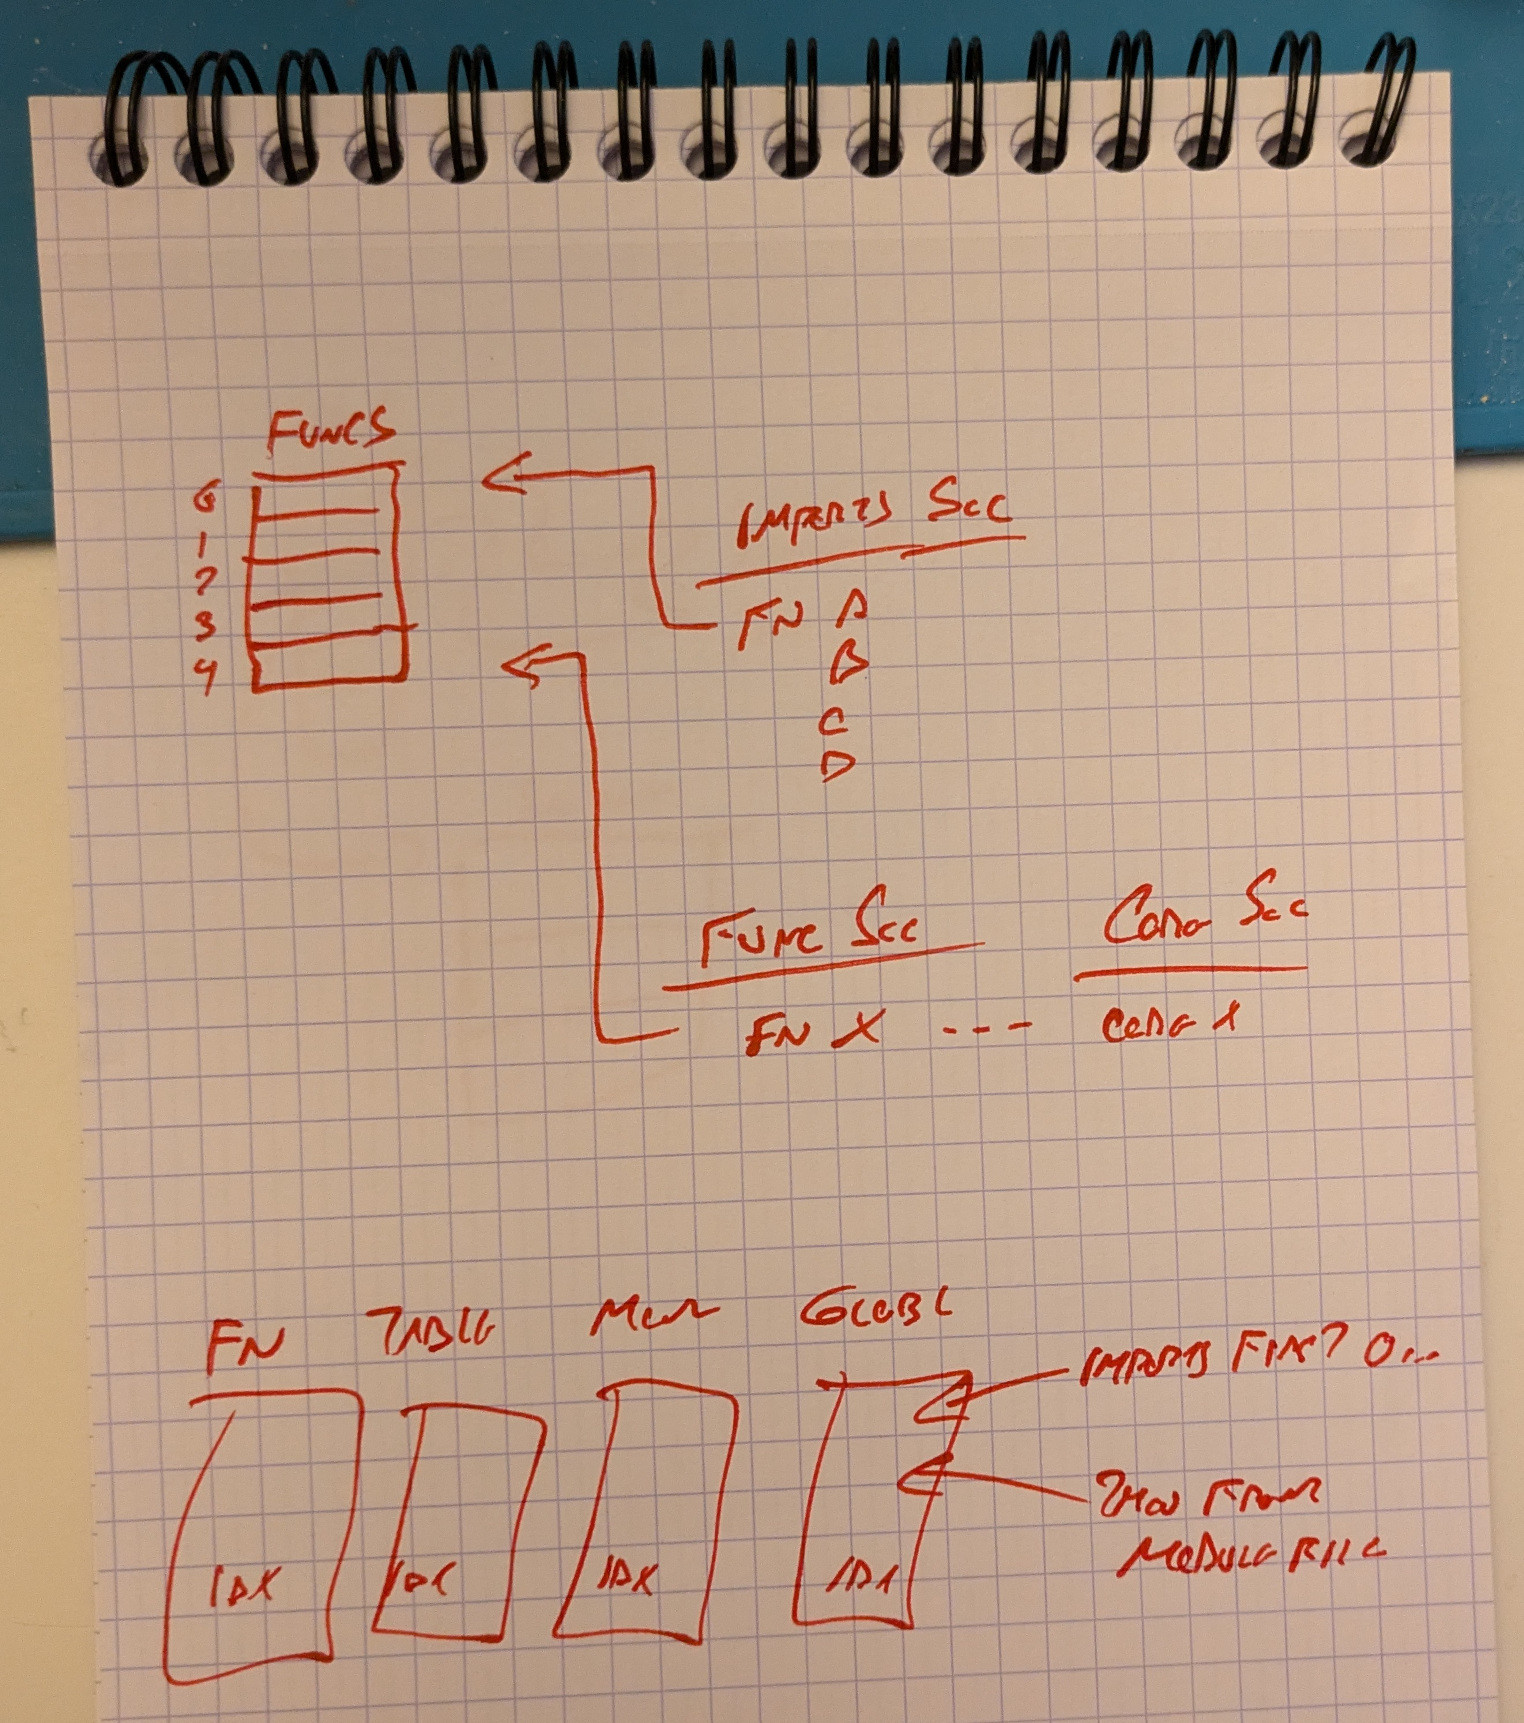 FUNCS
0
1
2
3
4
IMPORTS SEC
FN A
B
C
D
FUNC SEC
CODE SEC
FN X --- CODE X
FN TABLE MEM GLOBL
IMPORTS FIRST 0...
THEN FROM
MODULE FILE
IDX IDX IDX IDX